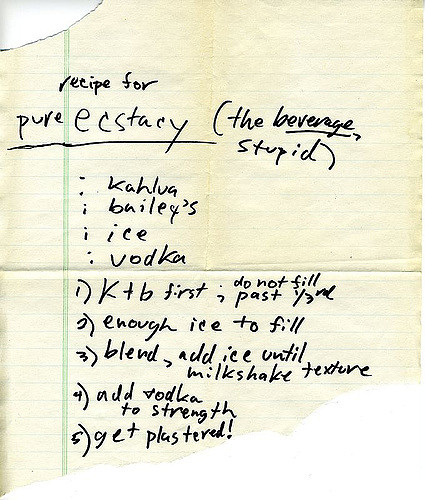 recipe for
pure ecstacy (the beverage,
stupid)
: kahlua
: bailey's
: ice
: vodka
1) K+b first ; do not fill
past 1/3rd
2) enough ice to fill
3) blend, add ice until
milkshake texture
4) add vodka
to strength
5) get plastered!